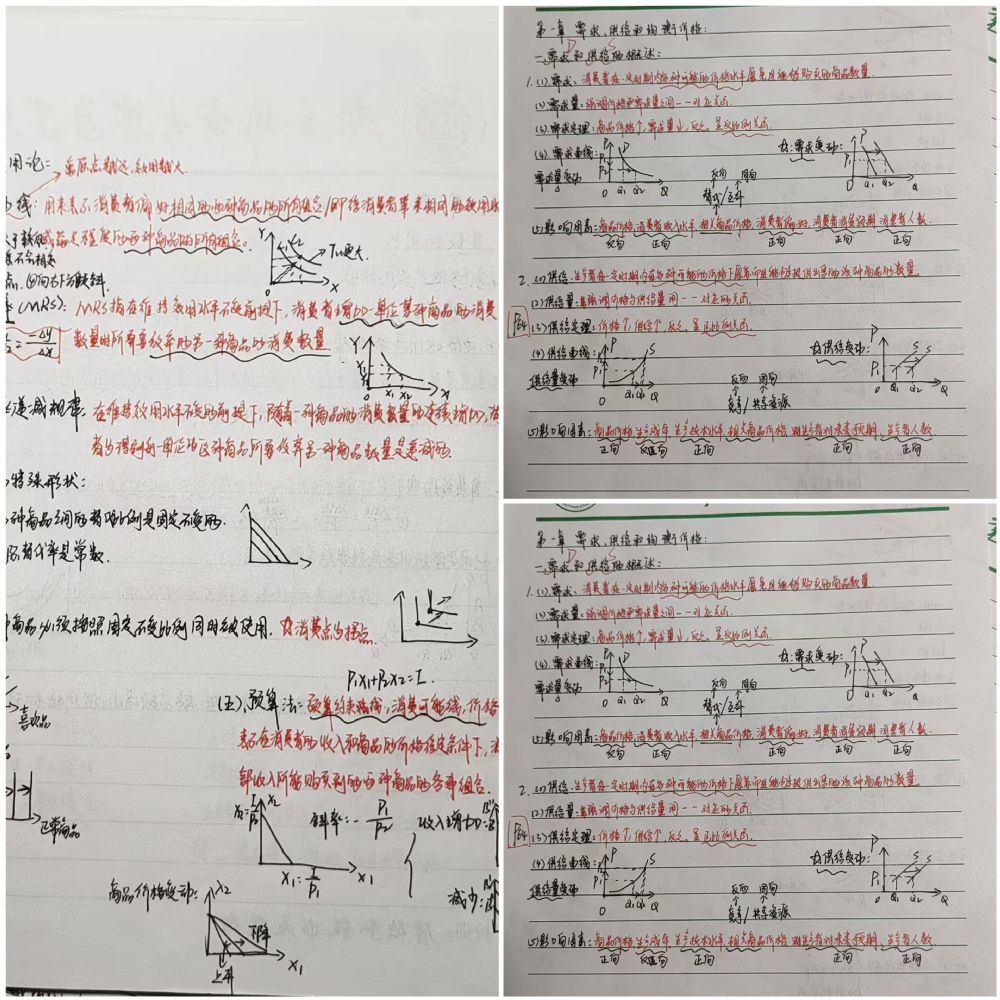 用论: 离原点越远,效用越大.
线: 用来表示消费者偏好相同的两种商品的所有组合/即给消费者带来相同的效用水
或满足程度的两种商品的所有组合。
Y
TU更大
X
点, 凹向右下方倾斜.
(MRS): MRS指在维持效用水平不变前提下, 消费者增加一单位某种商品的消费
= -ΔY/ΔX 数量时所需要放弃的另一种商品的消费数量
Y
X1 X2 X
递减规律: 在维持效用水平不变的前提下, 随着一种商品的消费数量的连续增加, 消
者为得到每一单位的这种商品所需放弃另一种商品数量是递减的.
特殊形状:
种商品之间的替代比例是固定不变的.
际替代率是常数.
商品必须按照固定不变比例同时被使用. 为消费点为拐点.
P1X1+P2X2=I.
喜欢品
(五), 预算法: 预算约束线, 消费可能线, 价格
表示在消费者的收入和商品的价格给定条件下, 消
部收入所能购买到的两种商品的各种组合.
正常商品
X2=I/P2 X2
斜率: -P1/P2 收入增加:
X1=I/P1 X1
商品价格变动: X2
减少:
下降
上升 X1
第一章 需求, 供给和均衡价格:
D S
一. 需求和供给的概述:
1. (1). 需求: 消费者在一定时期内各种可能的价格水平愿意且能够购买的商品数量.
(2). 需求量: 强调价格和需求量之间一一对应关系.
(3). 需求定理: 商品价格↑, 需求量↓, 反之. 呈反比例关系.
(4). 需求曲线: P D
为: 需求变动: P
需求量变动 P1 P2
0 Q1 Q2 Q
反向 同向
替代/互补
P1 Q1 Q2 Q
(5) 影响因素: 商品价格, 消费者收入水平, 相关商品价格, 消费者偏好, 消费者消费预期, 消费者人数.
反向 正向 正向 正向 正向
2. (1). 供给: 生产者在一定时期内在各种可能的价格下愿意而且能够提供出售的该种商品的数量.
(2). 供给量: 强调价格与供给量间一一对应的关系.
(3) 供给定理: 价格↑, 供给↑, 反之. 呈正比例关系.
(4) 供给曲线: P S
为供给变动: P S S
供给量变动 P1
0 Q1 Q2 Q
反向 同向
竞争/共享资源
P1 0 Q1 Q2 Q
(5) 影响因素: 商品价格, 生产成本, 生产技术水平, 相关商品价格, 生产者对未来预期, 生产者人数
正向 反向 正向 正向 正向
第一章 需求, 供给和均衡价格:
D S
一. 需求和供给的概述:
1. (1). 需求: 消费者在一定时期内各种可能的价格水平愿意且能够购买的商品数量.
(2). 需求量: 强调价格和需求量之间一一对应关系.
(3). 需求定理: 商品价格↑, 需求量↓, 反之. 呈反比例关系.
(4). 需求曲线: P D
为: 需求变动: P
需求量变动 P1 P2
0 Q1 Q2 Q
反向 同向
替代/互补
P1 Q1 Q2 Q
(5) 影响因素: 商品价格, 消费者收入水平, 相关商品价格, 消费者偏好, 消费者消费预期, 消费者人数.
反向 正向 正向 正向 正向
2. (1). 供给: 生产者在一定时期内在各种可能的价格下愿意而且能够提供出售的该种商品的数量.
(2). 供给量: 强调价格与供给量间一一对应的关系.
(3) 供给定理: 价格↑, 供给↑, 反之. 呈正比例关系.
(4) 供给曲线: P S
为供给变动: P S S
供给量变动 P1
0 Q1 Q2 Q
反向 同向
竞争/共享资源
P1 0 Q1 Q2 Q
(5) 影响因素: 商品价格, 生产成本, 生产技术水平, 相关商品价格, 生产者对未来预期, 生产者人数
正向 反向 正向 正向 正向